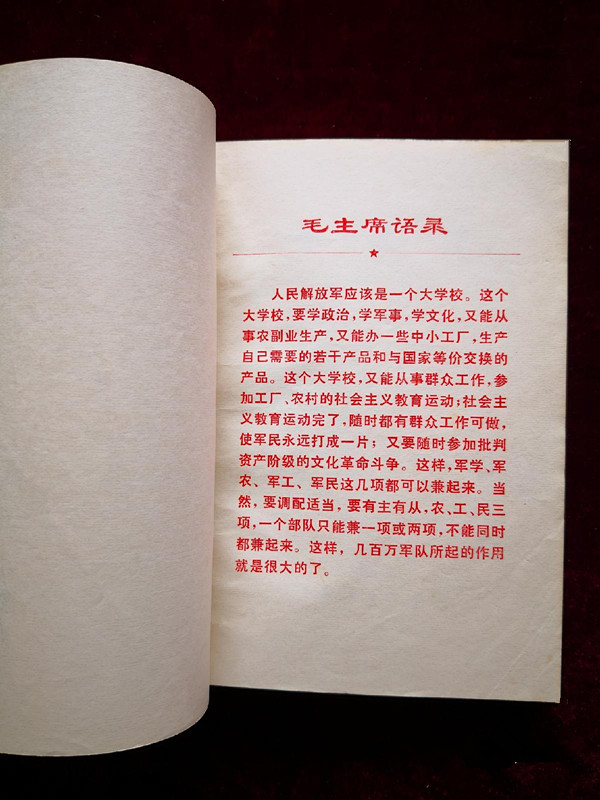 毛主席语录
人民解放军应该是一个大学校。这个
大学校，要学政治，学军事，学文化，又能从
事农副业生产，又能办一些中小工厂，生产
自己需要的若干产品和与国家等价交换的
产品。这个大学校，又能从事群众工作，参
加工厂、农村的社会主义教育运动；社会主
义教育运动完了，随时都有群众工作可做，
使军民永远打成一片；又要随时参加批判
资产阶级的文化革命斗争。这样，军学、军
农、军工、军民这几项都可以兼起来。当
然，要调配适当，要有主有从，农、工、民三
项，一个部队只能兼一项或两项，不能同时
都兼起来。这样，几百万军队所起的作用
就是很大的了。